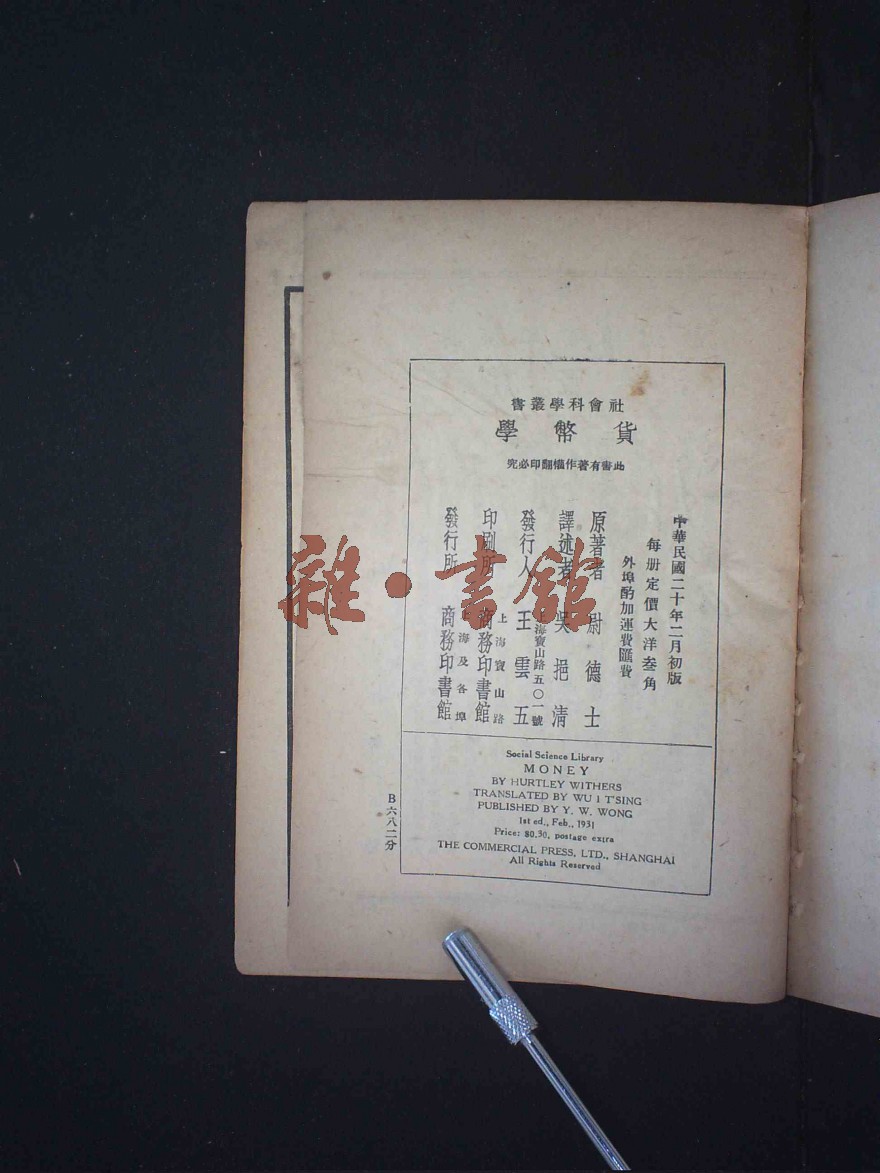 社會科學叢書
貨幣學
此書有著作權翻印必究
中華民國二十年二月初版
每册定價大洋叁角
外埠酌加運費匯費
原著者 尉德士
譯述者 吳挹清
上海寶山路五〇一號
發行人 王雲五
上海寶山路
印刷所 商務印書館
上海及各埠
發行所 商務印書館
Social Science Library
MONEY
BY HURTLEY WITHERS
TRANSLATED BY WU I TSING
PUBLISHED BY Y. W. WONG
1st ed., Feb., 1931
Price: $0.30, postage extra
THE COMMERCIAL PRESS, LTD., SHANGHAI
All Rights Reserved
B六八二分
雜·書館